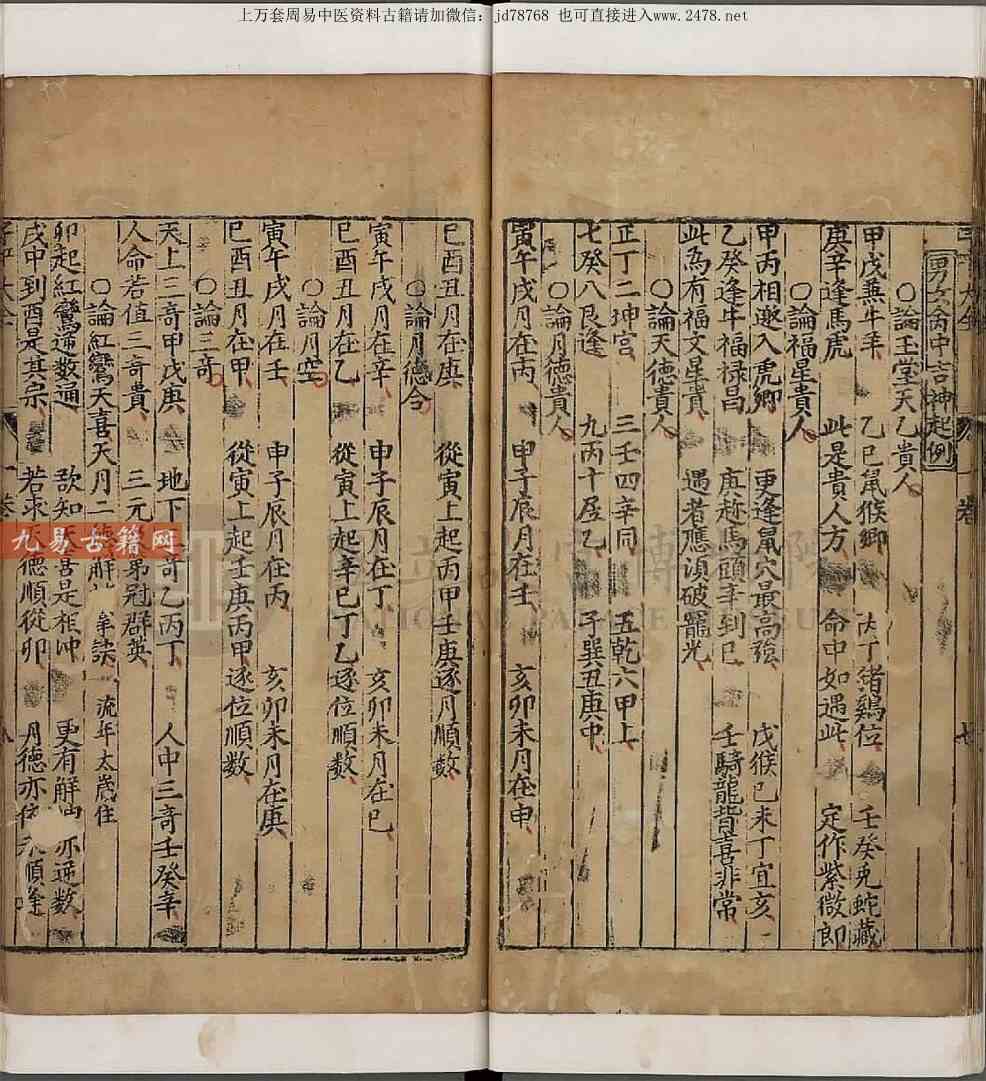 上万套周易中医资料古籍请加微信：jd78768 也可直接进入www.2478.net
卷 七
男女命中吉神起例
○論玉堂天乙貴人
甲戊兼牛羊 乙己鼠猴鄉 丙丁猪鷄位 壬癸兎蛇藏
庚辛逢馬虎 此是貴人方 命中如遇此 定作紫微郎
○論福星貴人
甲丙相邀入虎鄉 更逢鼠穴最高強 戊猴己未丁宜亥
乙癸逢牛福祿昌 庚趂馬頭辛到巳 壬騎龍背喜非常
此為有福文星貴 遇者應須破寵光
○論天德貴人
正丁二坤宮 三壬四辛同 五乾六甲上
七癸八艮逢 九丙十居乙 子巽丑庚中
○論月德貴人
寅午戌月在丙 申子辰月在壬 亥卯未月在甲
巳酉丑月在庚 從寅上起丙甲壬庚逐月順數
○論月德合
寅午戌月在辛 申子辰月在丁 亥卯未月在己
巳酉丑月在乙 從寅上起辛己丁乙逐位順數
○論月空
寅午戌月在壬 申子辰月在丙 亥卯未月在庚
巳酉丑月在甲 從寅上起壬庚丙甲逐位順數
○論三奇
天上三奇甲戊庚 地下 奇乙丙丁 人中三奇壬癸辛
人命若值三奇貴 三元 第冠群英
○論紅鸞天喜天月二德解 年訣 流年太歲住
卯起紅鸞逆數通 欲知天喜是相冲 更有解神亦逆數
戌中到酉是其宗 若求天德順從卯 月德亦 順逢
九易古籍网